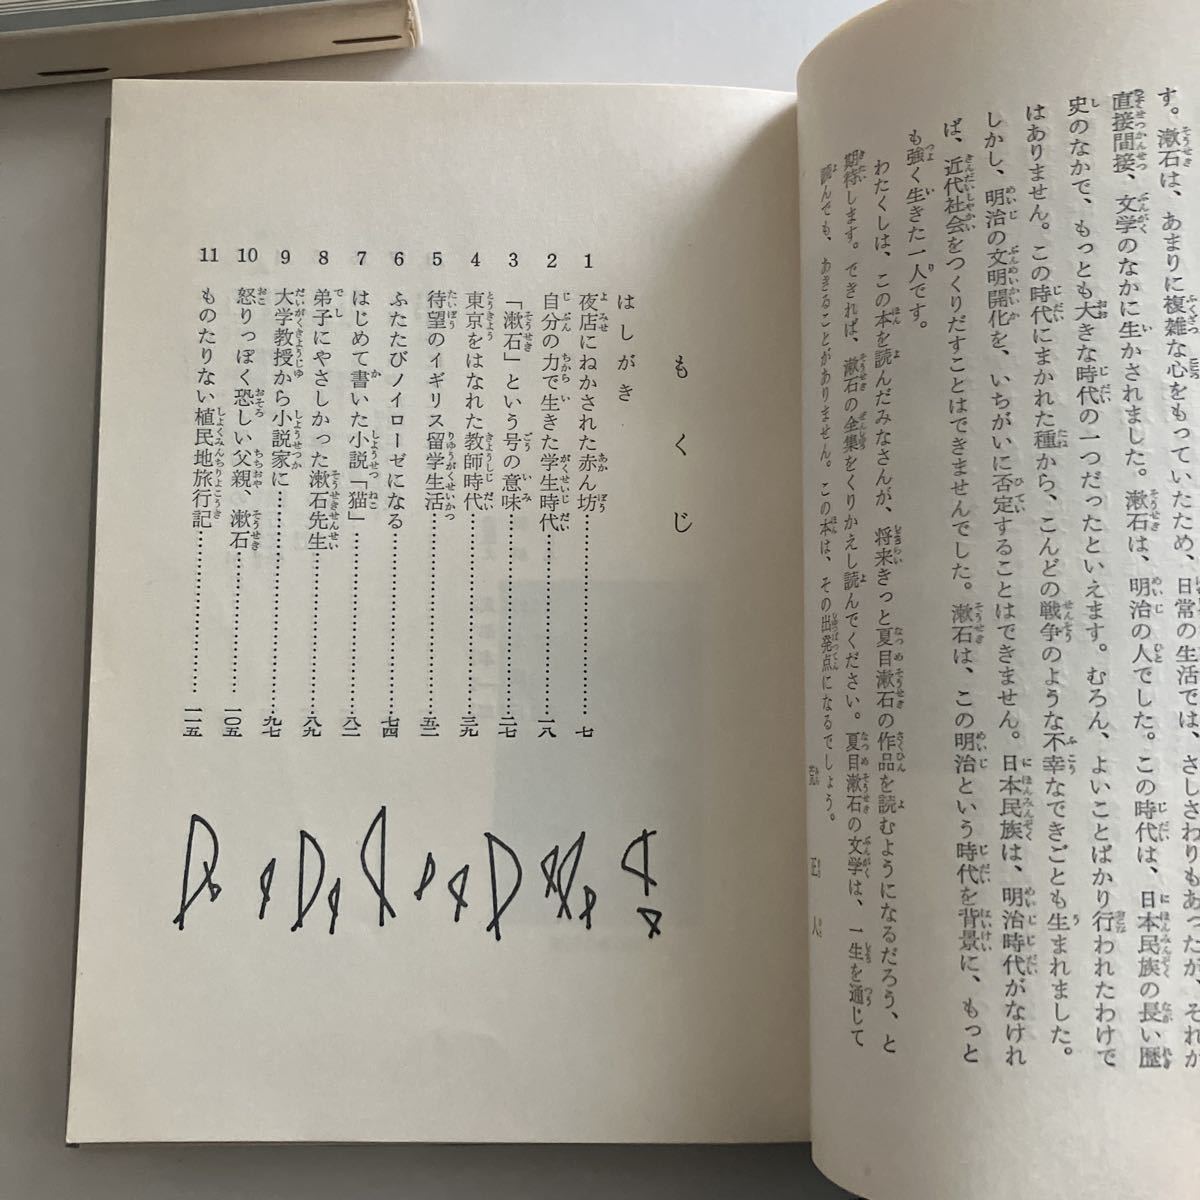 す。漱石は、あまりに複雑な心をもっていたため、日常の生活では、さしさわりもあったが、それが
直接間接、文学のなかに生かされました。漱石は、明治の人でした。この時代は、日本民族の長い歴
史のなかで、もっとも大きな時代の一つだったといえます。むろん、よいことばかり行われたわけで
はありません。この時代にまかれた種から、こんどの戦争のような不幸なできごとも生まれました。
しかし、明治の文明開化を、いちがいに否定することはできません。日本民族は、明治時代がなけれ
ば、近代社会をつくりだすことはできませんでした。漱石は、この明治という時代を背景に、もっと
も強く生きた一人です。
わたくしは、この本を読んだみなさんが、将来きっと夏目漱石の作品を読むようになるだろう、と
期待します。できれば、漱石の全集をくりかえし読んでください。夏目漱石の文学は、一生を通じて
読んでも、あきることがありません。この本は、その出発点になるでしょう。
正人
もくじ
はしがき
1 夜店にねかされた赤ん坊……七
2 自分の力で生きた学生時代……一八
3 「漱石」という号の意味……二七
4 東京をはなれた教師時代……三九
5 待望のイギリス留学生活……五二
6 ふたたびノイローゼになる……七四
7 はじめて書いた小説「猫」……八二
8 弟子にやさしかった漱石先生……八九
9 大学教授から小説家に……九七
10 怒りっぽく恐しい父親、漱石……一〇五
11 ものたりない植民地旅行記……一一五